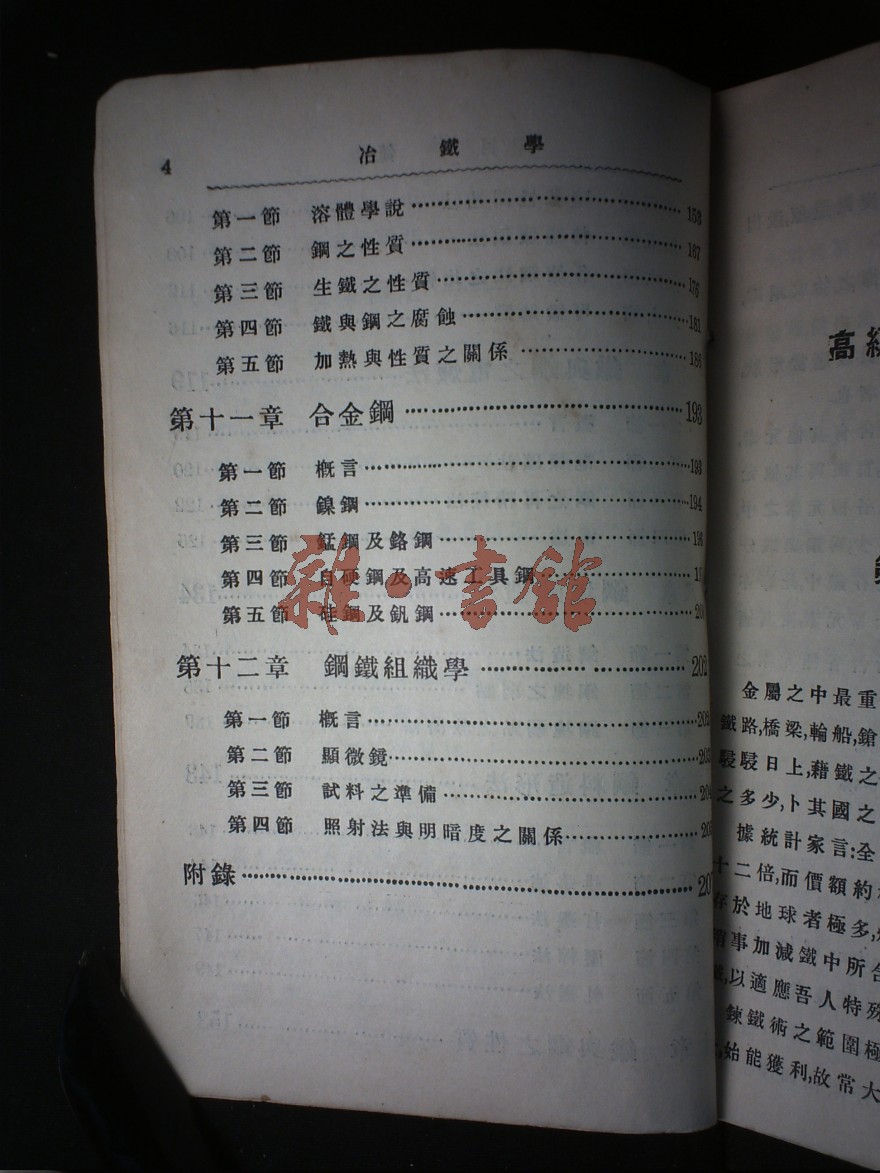 4 冶鐵學
第一節 溶體學說 158
第二節 鋼之性質 167
第三節 生鐵之性質 176
第四節 鐵與鋼之腐蝕 181
第五節 加熱與性質之關係 186
第十一章 合金鋼 193
第一節 概言 193
第二節 鎳鋼 194
第三節 錳鋼及鉻鋼 19
第四節 自硬鋼及高速工具鋼 1
第五節 硅鋼及釩鋼 20
第十二章 鋼鐵組織學 202
第一節 概言 202
第二節 顯微鏡 203
第三節 試料之準備 204
第四節 照射法與明暗度之關係 205
附錄 207
雜·書館
高級
金屬之中最重
鐵路,橋梁,輪船,鎗
駸駸日上,藉鐵之
之多少,卜其國之
據統計家言:全
十二倍,而價額約
存於地球者極多,
有事加減鐵中所含
以適應吾人特殊
鍊鐵術之範圍極
始能獲利,故常大